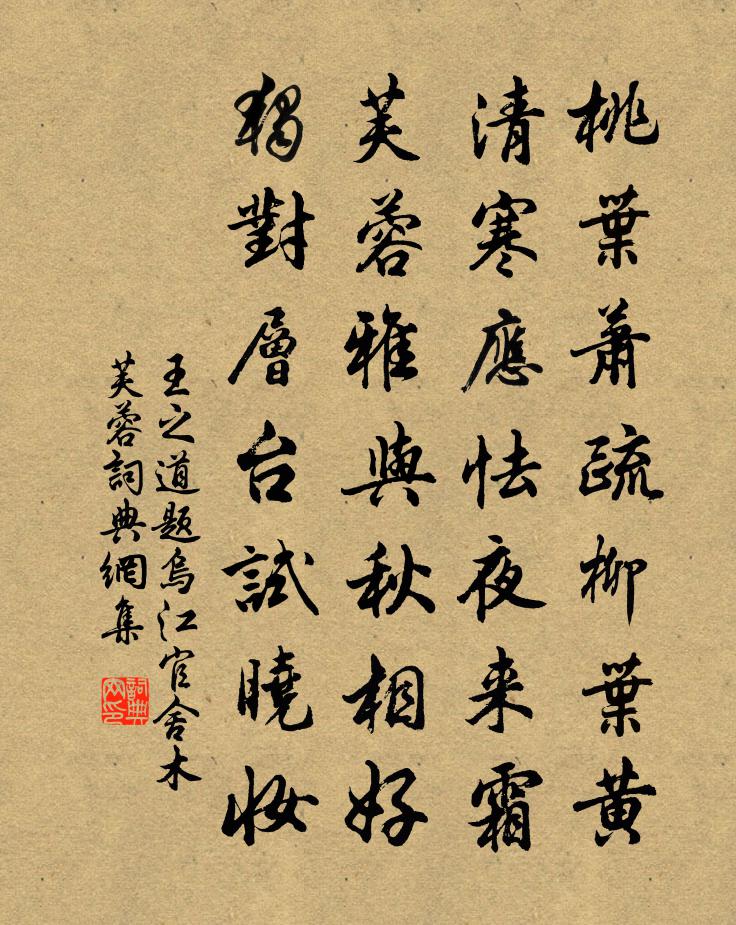 桃葉蕭疏柳葉黃
清寒應怯夜来霜
芙蓉雅與秋相好
獨對層台試曉妝
王之道题烏江官舍木
芙蓉詞典網集
詞典
网印